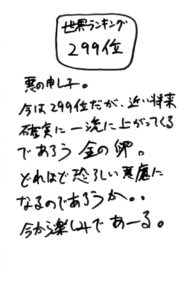 世界ランキング
299位
悪の申し子。
今は299位だが、近い将来
確実に一流に上がってくる
であろう金の卵。
どれほど恐ろしい悪魔に
なるのであろうか。。
今から楽しみであーる。